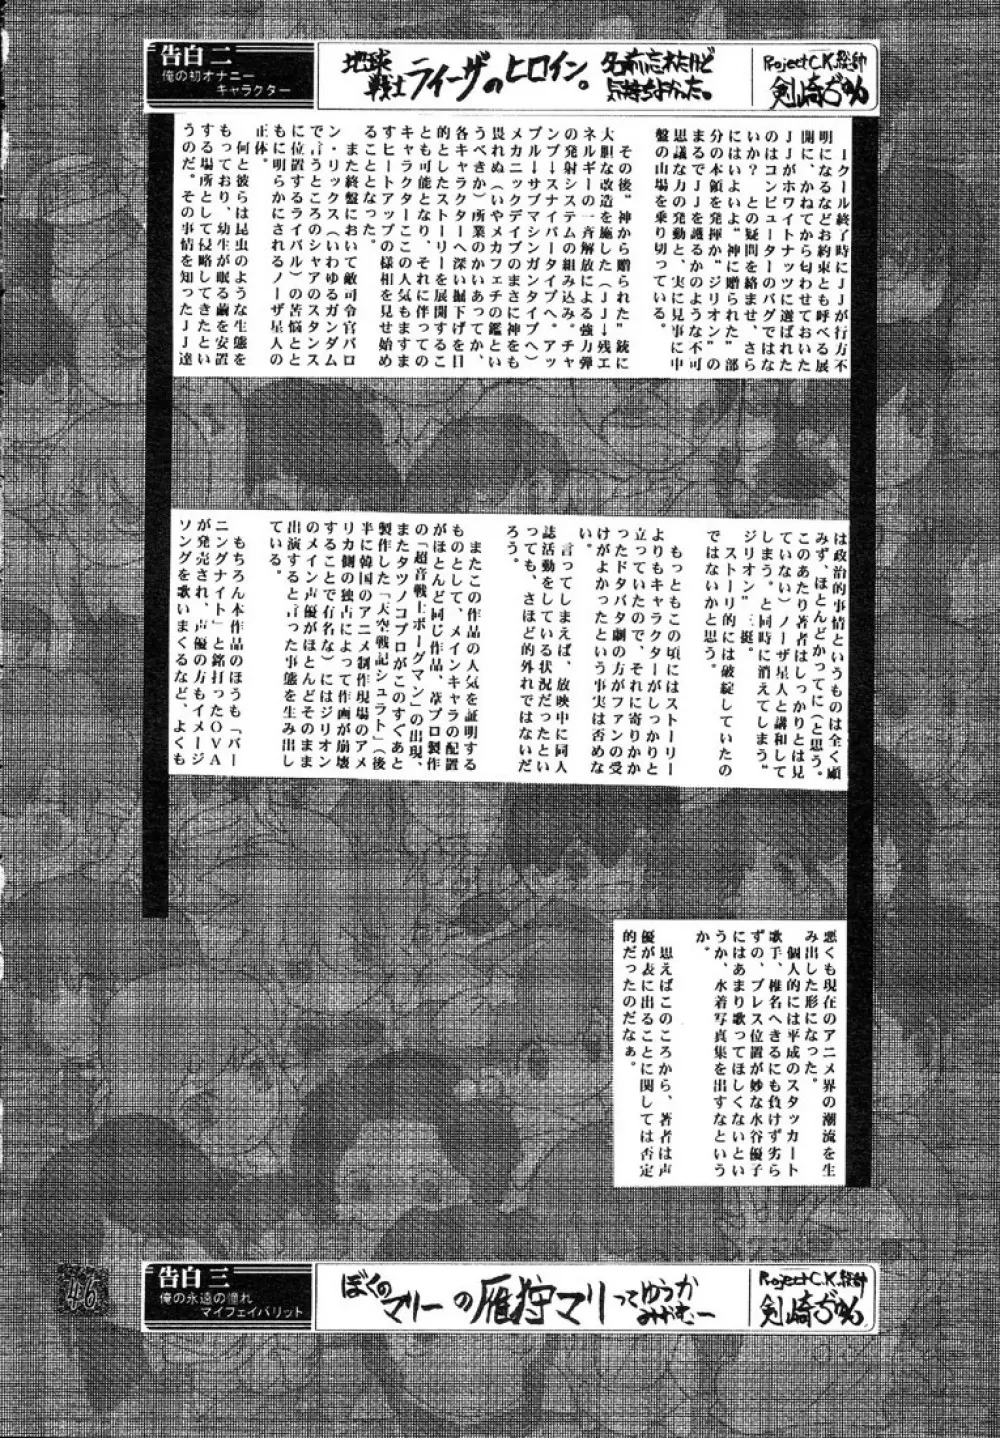 告白二
俺の初オナニー
キャラクター
地球
戦士ライーザのヒロイン。
名前忘れたけど
気持ちよかった。
Project C.K.総帥
剣崎ぢゅん
1クール終了時にJJが行方不
明になるなどお約束とも呼べる展
開に、かねてから匂わせておいた
JJがホワイトナッツに選ばれた
のはコンピューターのバグではな
いか? との疑問を絡ませ、さら
にはいよいよ“神に贈られた”部
分の本領を発揮か“ジリオン”の
まるでJJを護るかのような不可
思議な力の発動と、実に見事に中
盤の山場を乗り切っている。
その後“神から贈られた”銃に
大胆な改造を施した(JJ→残エ
ネルギーの一斉解放による強力弾
の発射システムの組み込み。チャ
ンプ→スナイパータイプへ。アッ
プル→サブマシンガンタイプへ)
メカニックデイブのまさに神をも
畏れぬ(いやメカフェチの鑑とい
うべきか)所業のかいあってか、
各キャラクターへ深い掘下げを目
的としたストーリーを展開するこ
とも可能となり、それに伴っての
キャラクターここの人気もますま
すヒートアップの様相を見せ始め
ることとなった。
また終盤において敵司令官バロ
ン・リックス(いわゆるガンダム
で言うところのシャアのスタンス
に位置するライバル)の苦悩とと
もに明らかにされるノーザ星人の
正体。
何と彼らは昆虫のような生態を
もっており、幼生が眠る繭を安置
する場所として侵略してきたとい
うのだ。その事情を知ったJJ達
は政治的事情というものは全く顧
みず、ほとんどかってに(と思う。
このあたり著者はしっかりとは見
ていない)ノーザ星人と講和して
しまう。と同時に消えてしまう“
ジリオン”三挺。
ストーリ的には破綻していたの
ではないかと思う。
もっともこの頃にはストーリー
よりもキャラクターがしっかりと
立っていたので、それに寄りかか
ったドタバタ劇の方がファンの受
けがよかったという事実は否めな
い。
言ってしまえば、放映中に同人
誌活動をしている状況だったとい
っても、さほど的外れではないだ
ろう。
またこの作品の人気を証明する
ものとして、メインキャラの配置
がほとんど同じ作品、葦プロ製作
の「超音戦士ボーグマン」の出現、
またタツノコプロがこのすぐあと
製作した「天空戦記シュラト」(後
半に韓国のアニメ制作現場のアメ
リカ側の独占によって作画が崩壊
することで有名な)にはジリオン
のメイン声優がほとんどそのまま
出演すると言った事態を生み出し
ている。
もちろん本作品のほうも「バー
ニングナイト」と銘打ったOVA
が発売され、声優の方もイメージ
ソングを歌いまくるなど、よくも
悪くも現在のアニメ界の潮流を生
み出した形になった。
個人的には平成のスタッカート
歌手、椎名へきるにも負けず劣ら
ずの、ブレス位置が妙な水谷優子
にはあまり歌ってほしくないとい
うか、水着写真集を出すなという
か。
思えばこのころから、著者は声
優が表に出ることに関しては否定
的だったのだなぁ。
46
告白三
俺の永遠の憧れ
マイフェイバリット
ぼくの
マリーの雁狩マリってゆうか
みかむー
Project C.K.総帥
剣崎ぢゅん